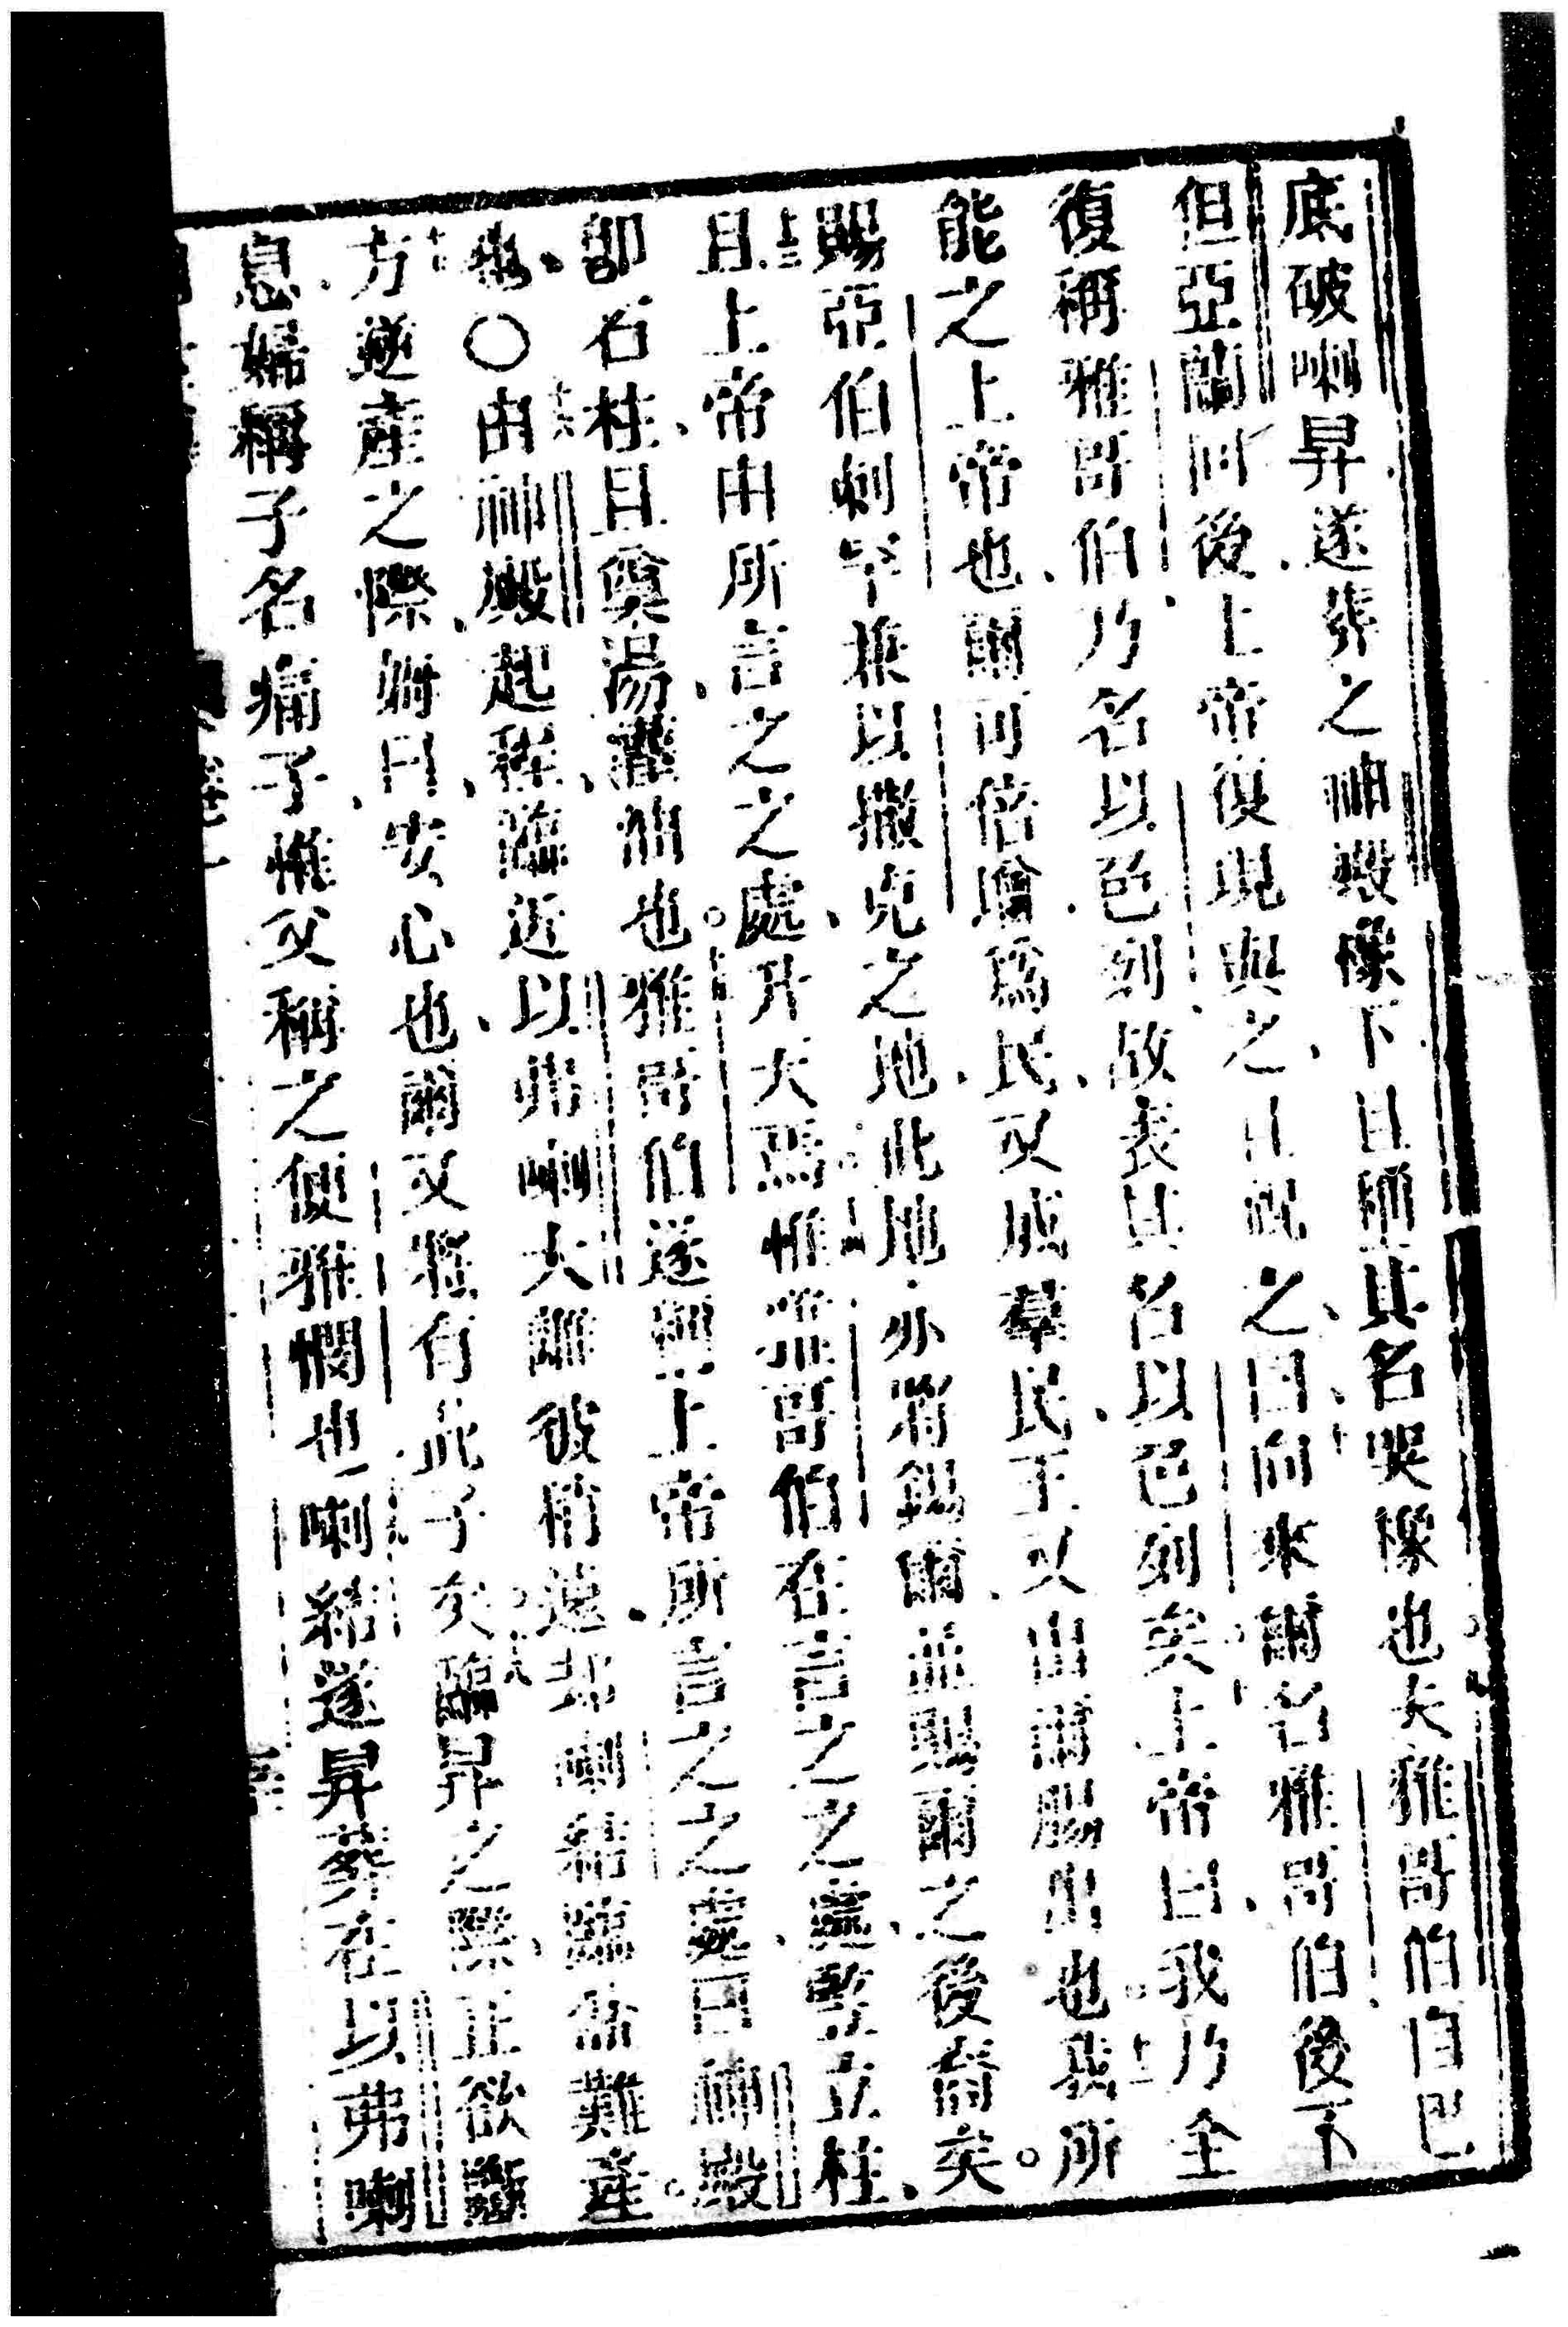 底破喇昇遂葬之神殿橡下且稱其名哭橡也夫雅哥伯自巴
但亞蘭回後上帝復現與之且祝之曰十向來爾名雅哥伯後不
復稱雅哥伯乃名以色列故表其名以色列矣上帝曰我乃全
能之上帝也爾可倍增爲民又成羣民王又由爾腸出也十二我所
賜亞伯剌罕兼以撒克之地此地亦將錫爾並賜爾之後裔矣
十三且上帝由所言之之處升天焉惟雅哥伯在言之之處豎立柱
卽石柱且奠湯灌油也十五雅哥伯遂與上帝所言之之處曰神殿
也〇十六由神殿起程臨近以弗喇大離彼稍遠却喇結臨盆難產
十七方逆產之際婢曰安心也爾又將有此子矣十八臨昇之際正欲斷
息婦稱子名痛子惟父稱之便雅憫也喇結遂昇葬在以弗喇